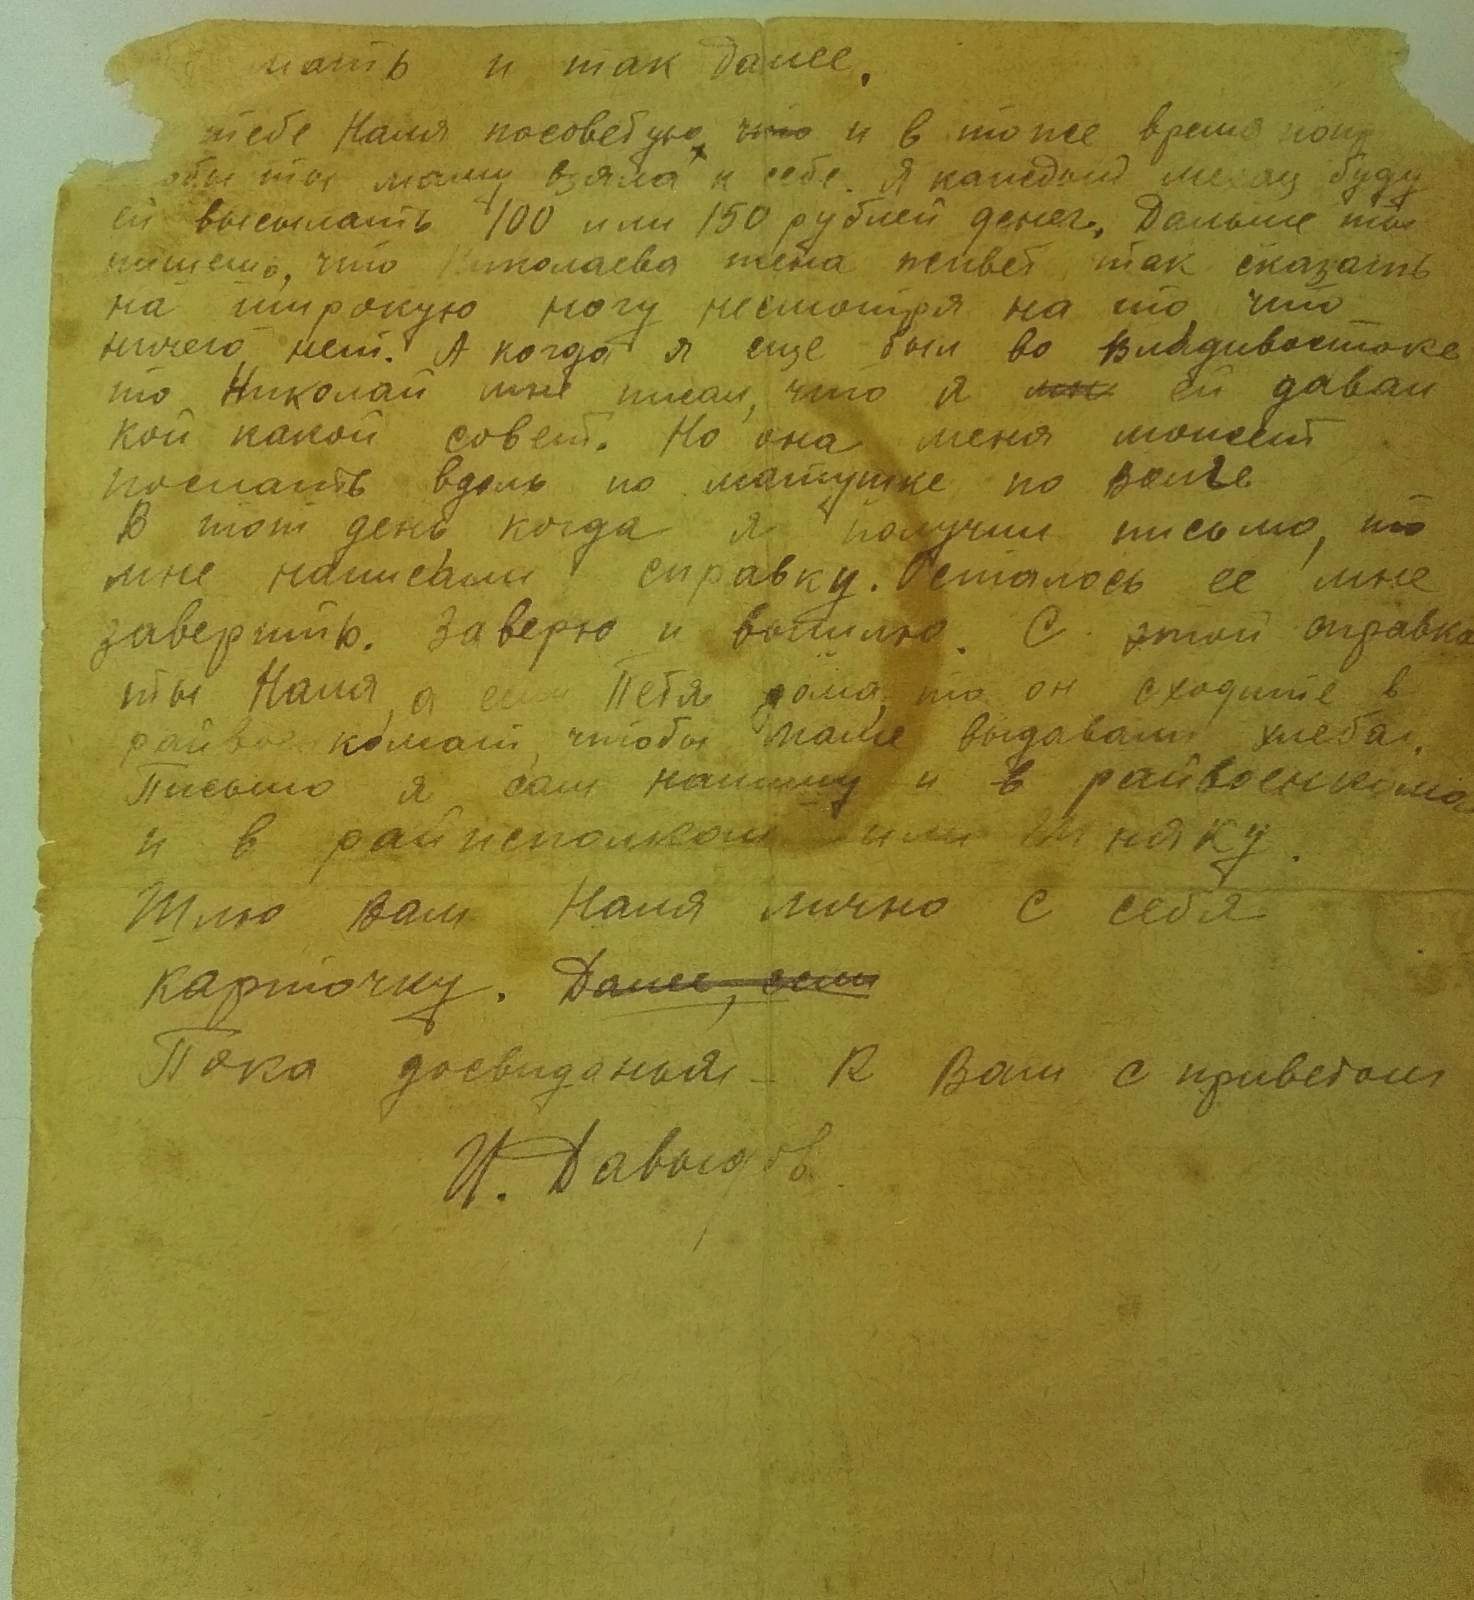 мать и так далее.
тебе Наля посоветую, что и в тоже время
обы ты маму взяла к себе. Я каждый месяц буду
ей высылать 100 или 150 рублей денег. Дальше ты
пишешь, что Николаева жена живет так сказать
на широкую ногу несмотря на то что
ничего нет. А когда я еще был во Владивостоке
то Николай мне писал, что я мн ей давал
кой какой совет. Но она меня может
послать вдоль по матушке по Волге
В тот день когда я получил письмо, то
мне написали справку. Осталось ее мне
заверить. Заверю и вышлю. С этой справкой
ты Наля, а если Петя дома, то он сходите в
райвоенкомат, чтобы маме выдавали хлеба.
Письмо я сам напишу и в райвоенкомат
и в райисполком или Шняку.
Шлю Вам Наля лично с себя
карточку. Далее, если
Пока досвиданья – К Вам с приветом
И. Давыдов.